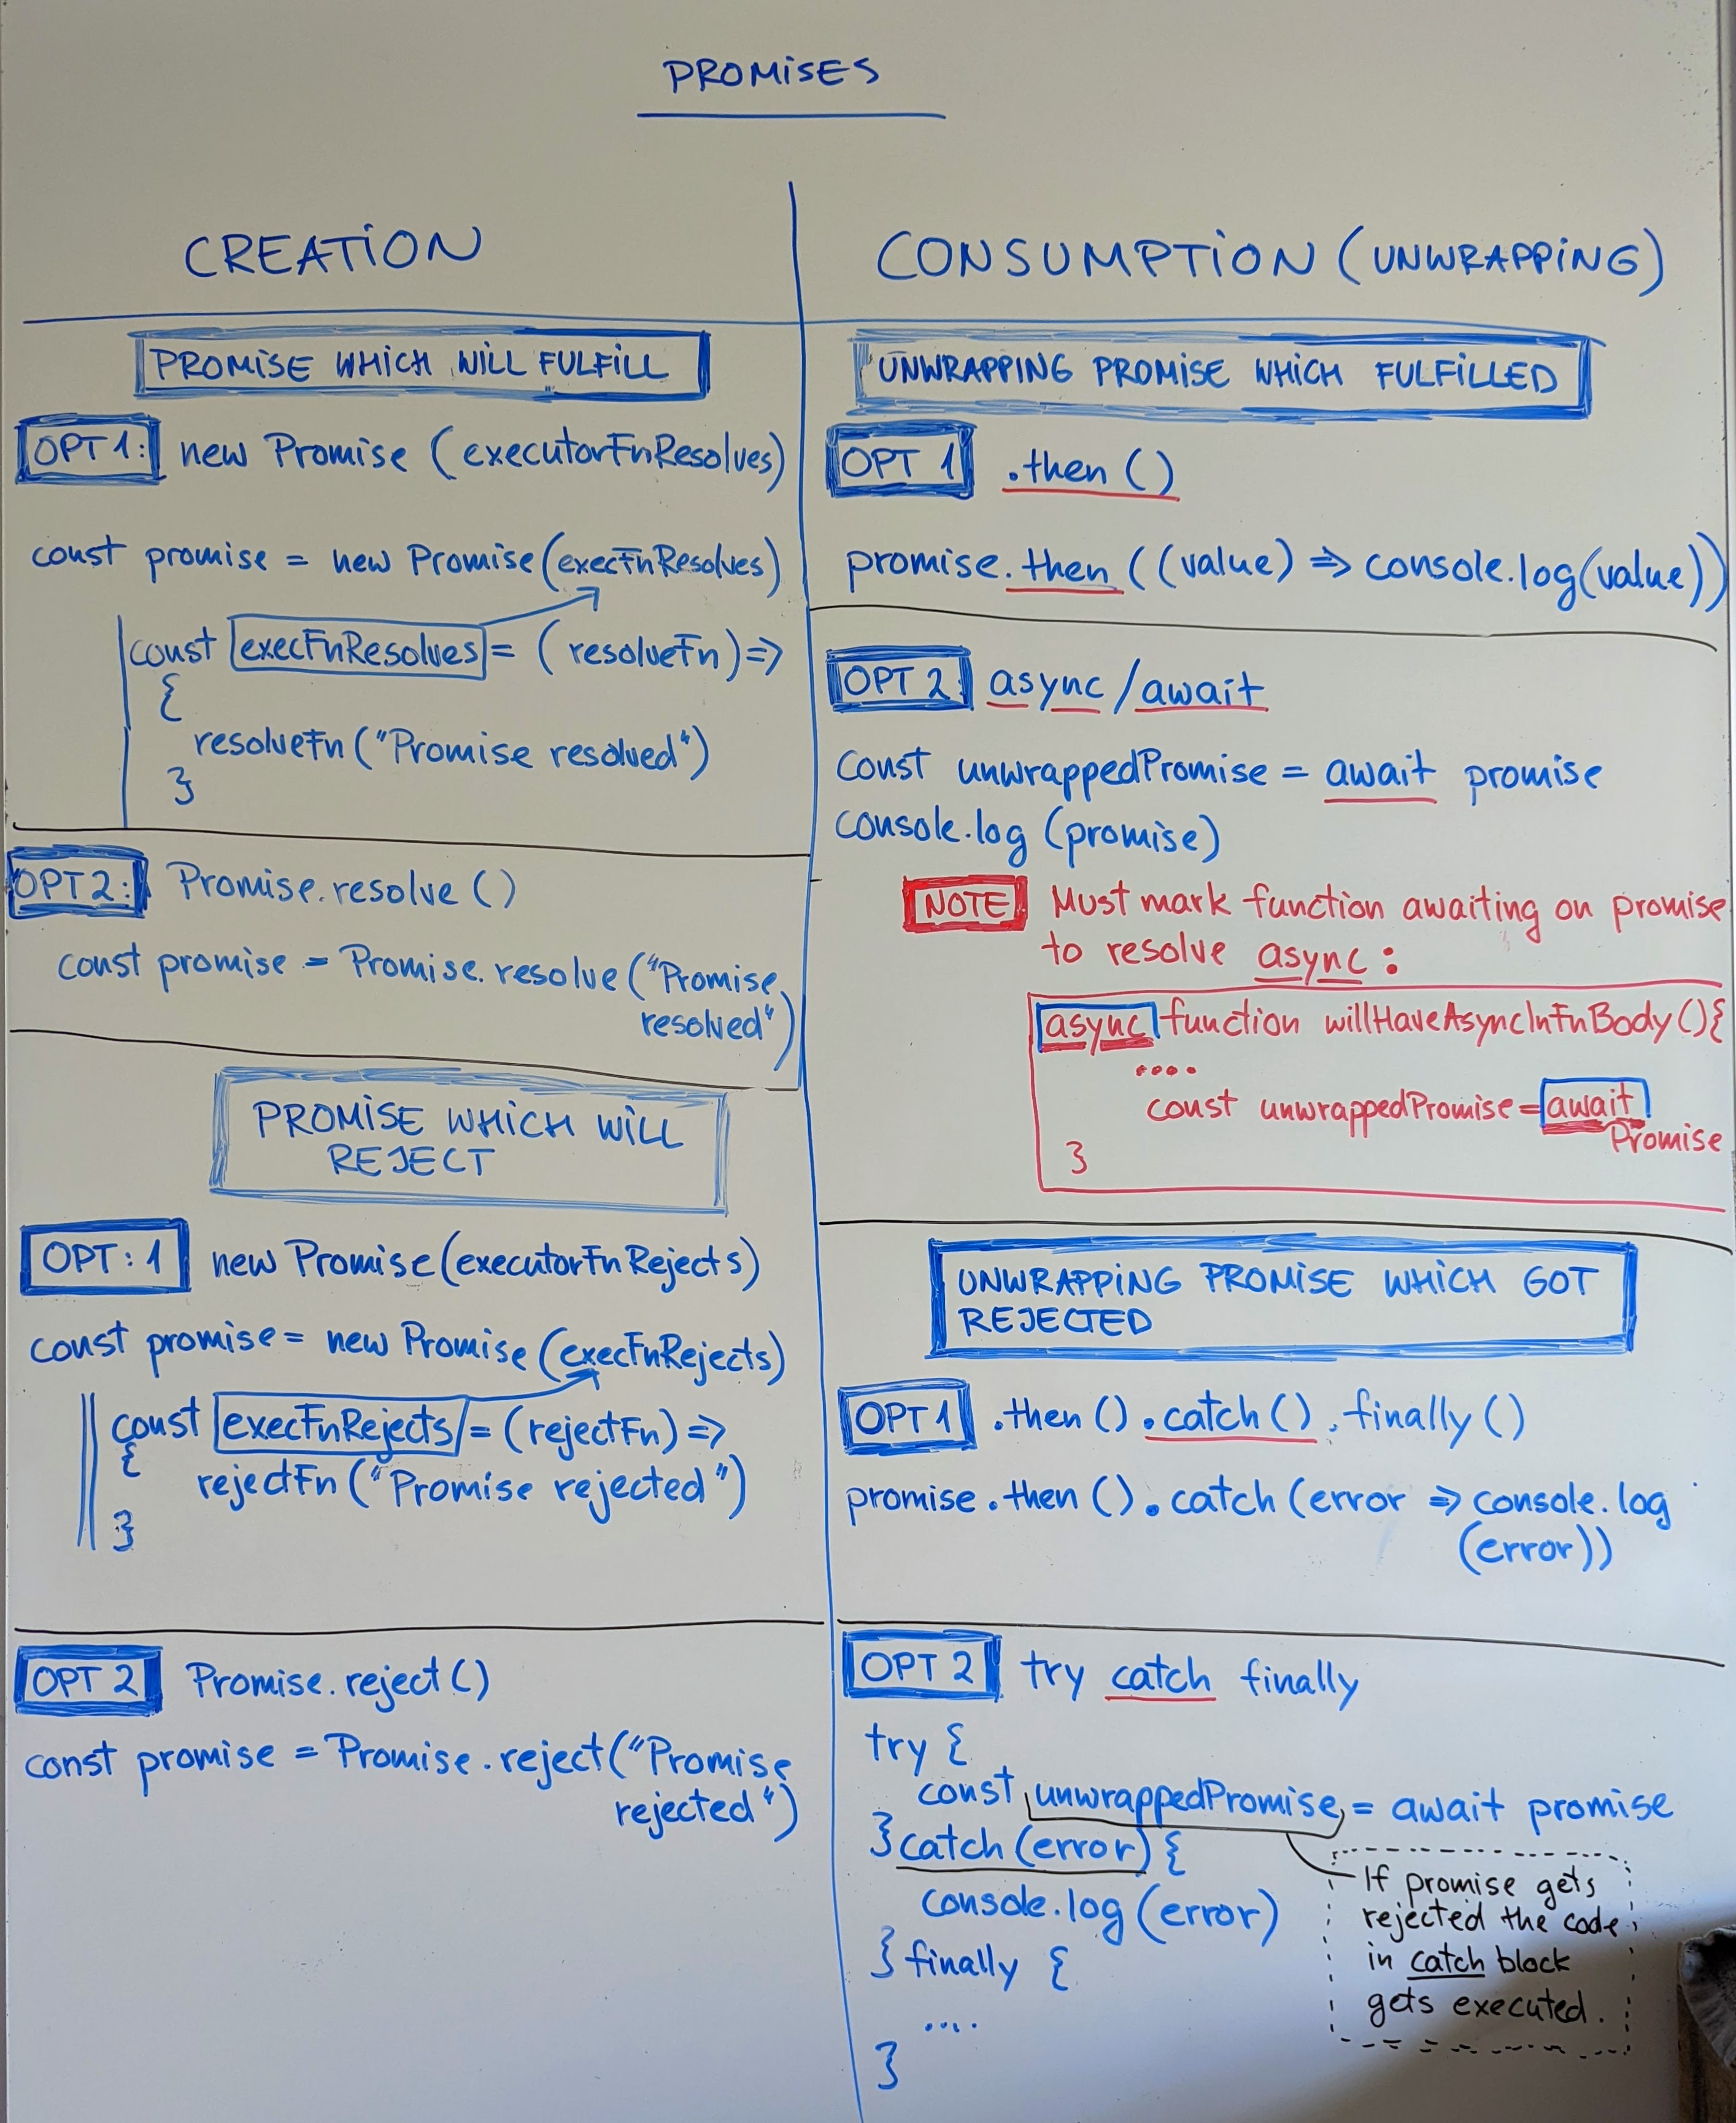 PROMISES
CREATION
PROMISE WHICH WILL FULFILL
OPT 1: new Promise (executorFnResolves)
const promise = new Promise(execFnResolves)
const execFnResolves = (resolveFn) =>
{
resolveFn("Promise resolved")
}
OPT 2: Promise.resolve()
const promise = Promise.resolve("Promise
resolved")
PROMISE WHICH WILL
REJECT
OPT: 1 new Promise(executorFnRejects)
const promise = new Promise(execFnRejects)
const execFnRejects = (rejectFn) =>
{
rejectFn("Promise rejected")
}
OPT 2 Promise.reject()
const promise = Promise.reject("Promise
rejected")
CONSUMPTION (UNWRAPPING)
UNWRAPPING PROMISE WHICH FULFILLED
OPT 1 .then()
promise.then((value) => console.log(value))
OPT 2 async/await
const unwrappedPromise = await promise
console.log(promise)
NOTE Must mark function awaiting on promise
to resolve async:
async function willHaveAsyncInFnBody(){
....
const unwrappedPromise = await
Promise
}
UNWRAPPING PROMISE WHICH GOT
REJECTED
OPT 1 .then().catch().finally()
promise.then().catch(error => console.log
(error))
OPT 2 try catch finally
try {
const unwrappedPromise = await promise
} catch (error) {
console.log(error)
} finally {
....
}
If promise gets
rejected the code
in catch block
gets executed.